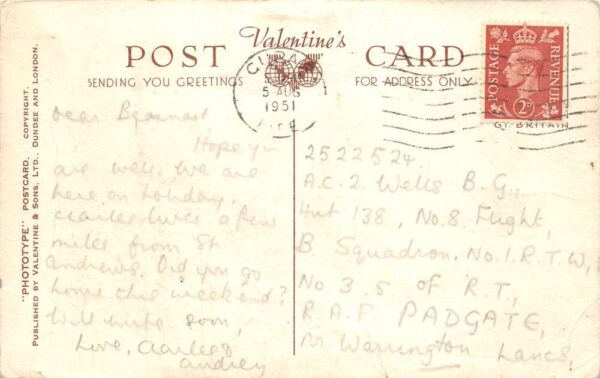 Valentine's
POST CARD
SENDING YOU GREETINGS
FOR ADDRESS ONLY
"PHOTOTYPE" POSTCARD. COPYRIGHT.
PUBLISHED BY VALENTINE & SONS, LTD., DUNDEE AND LONDON.
CUPAR
5 AUG
1951
FIFE
POSTAGE
REVENUE
2D
GT. BRITAIN
Dear
Hope y-
are well. We are
here on holiday.
lives a few
miles from St.
Andrews. Did you go
home this weekend?
Will write soon,
Love,
Audrey
2522524
A.C.2 Wells B.G.,
Hut 138, No.8 Flight,
B Squadron, No.1.R.T.W,
No 3 S of R.T.,
R.A.F. PADGATE,
Nr. Warrington Lancs,